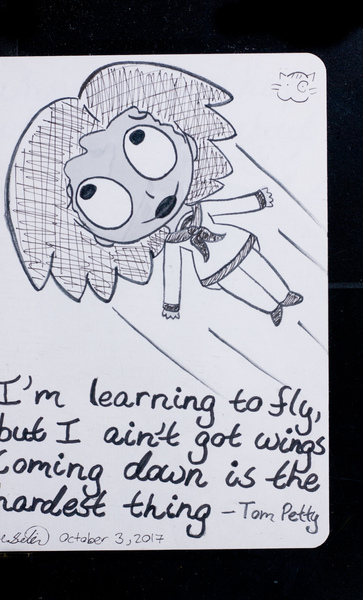 I'm learning to fly,
but I ain't got wings
Coming down is the
hardest thing - Tom Petty
October 3, 2017